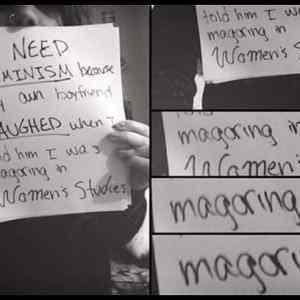 NEED
MINISM because
y own boyfriend
AUGHED when I
ld him I was
agoring in
Women's Studies
told him I wa
magoring in
Women's S
magoring in
Women's
magoring
magori